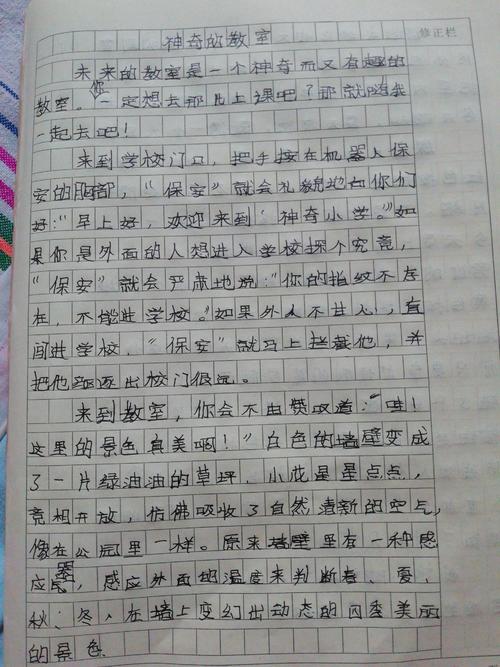 神奇的教室
修正栏
未来的教室是一个神奇而又有趣的
教室。你一定想去那儿上课吧？那就随我
一起去吧！
来到学校门口，把手按在机器人保
安的胸部，“保安”就会礼貌地向你们
好：“早上好，欢迎来到‘神奇小学。”如
果你是外面的人想进入学校探个究竟，
“保安”就会严肃地说：“你的指纹不存
在，不能进学校。”如果外人不甘心，直
闯进学校，“保安”就马上拦截他，并
把他驱逐出校门很远。
来到教室，你会不由赞叹道：“哇！
这里的景色真美啊！”白色的墙壁变成
了一片绿油油的草坪，小花星星点点，
竞相开放，仿佛吸收了自然清新的空气，
像在公园里一样。原来墙壁里有一种感
应器，感应外面地温度来判断春、夏、
秋、冬，在墙上变幻出动态的四季美丽
的景色。